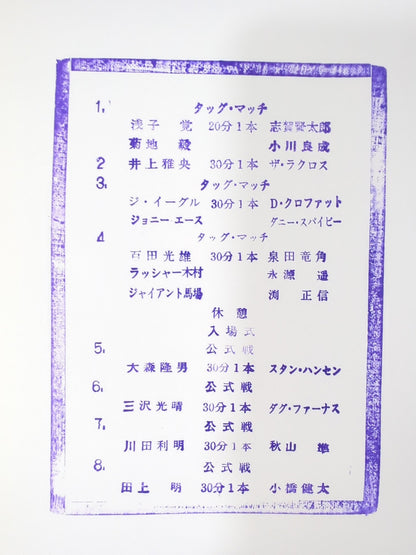 1. タッグ・マッチ
浅子 覚 20分1本 志賀賢太郎
菊地 毅 小川良成
2 井上雅央 30分1本 ザ・ラクロス
3. タッグ・マッチ
ジ・イーグル 30分1本 D・クロファット
ジョニー エース ダニー・スパイビー
4 タッグ・マッチ
百田光雄 30分1本 泉田竜角
ラッシャー木村 永源 遥
ジャイアント馬場 渕 正信
休憩
入場式
5. 公式戦
大森隆男 30分1本 スタン・ハンセン
6. 公式戦
三沢光晴 30分1本 ダグ・ファーナス
7. 公式戦
川田利明 30分1本 秋山 準
8. 公式戦
田上 明 30分1本 小橋健太